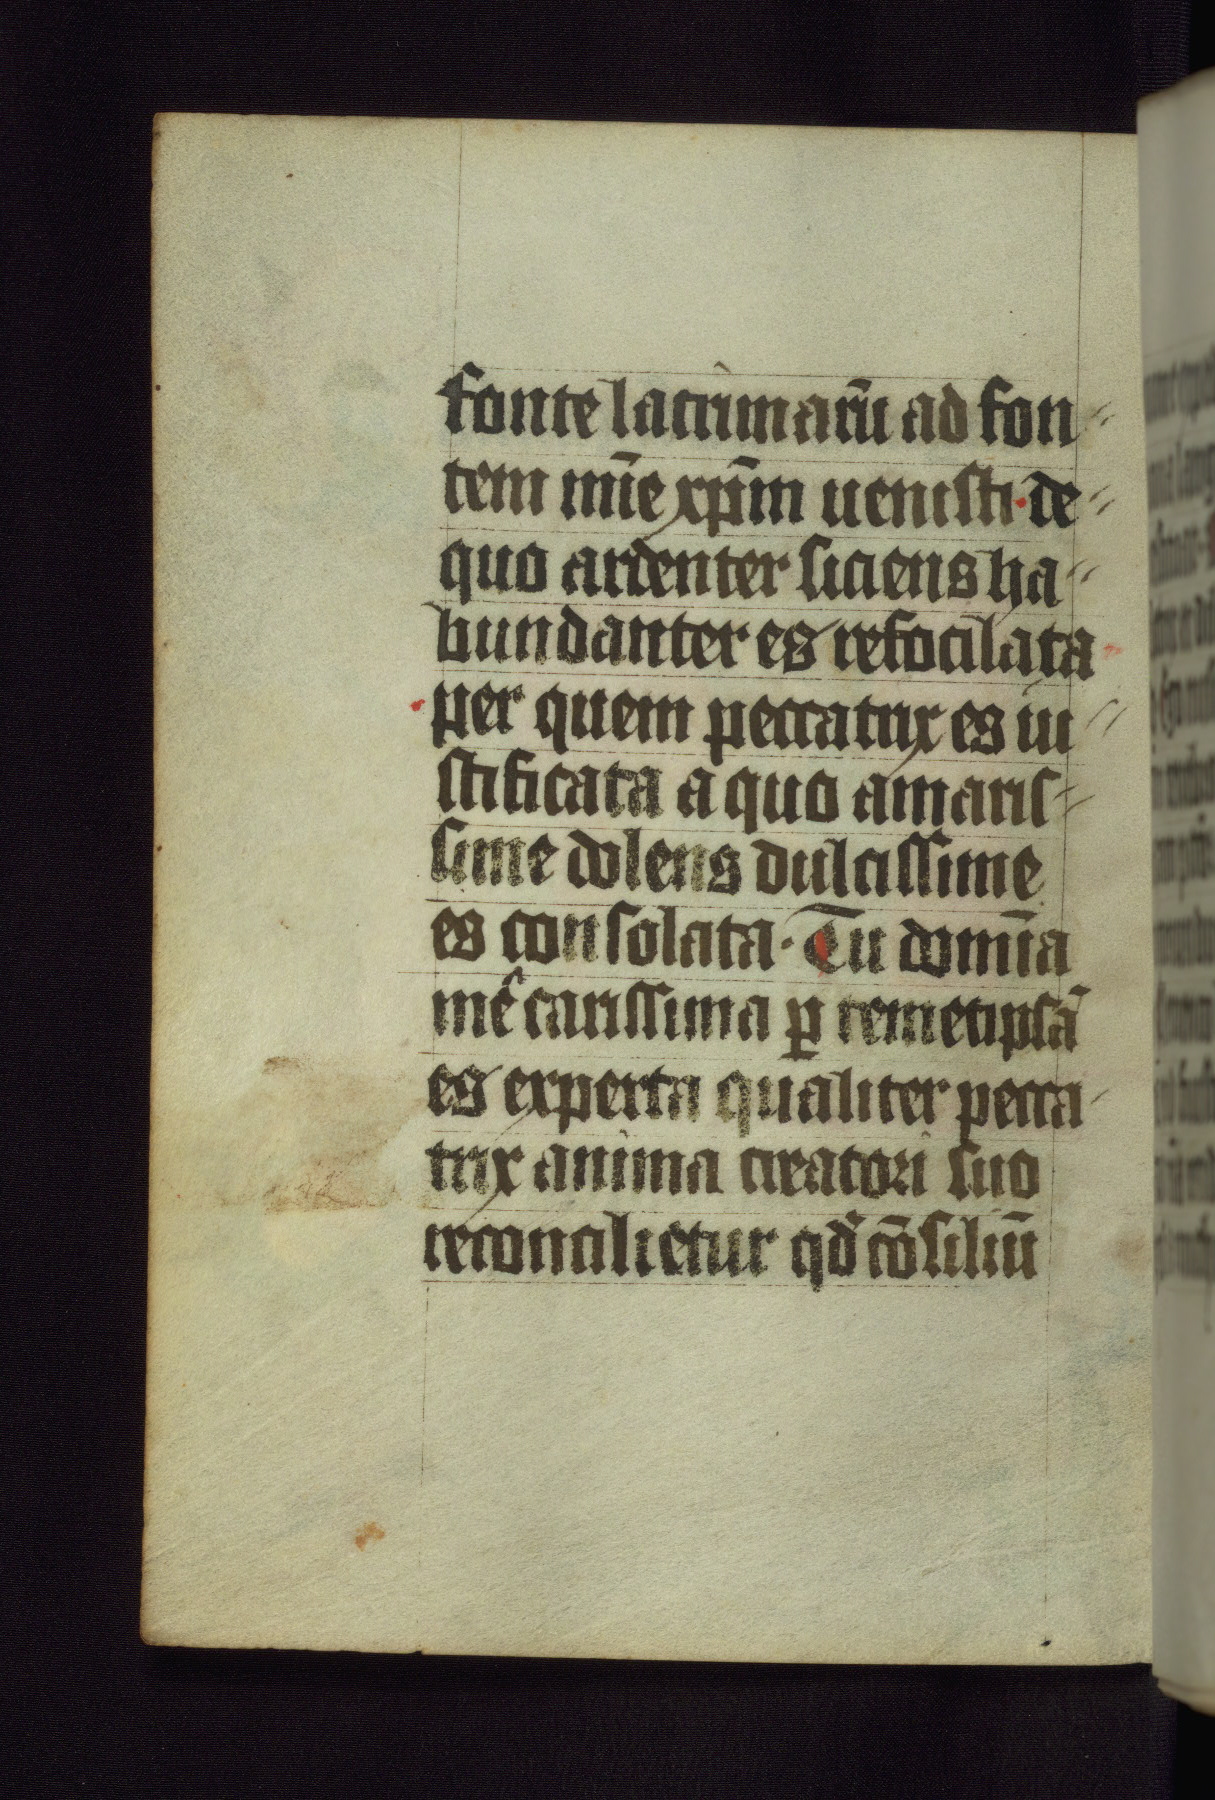 fonte lacrimarū ad fon
tem mīe xp̄m uenisti · de
quo ardenter siciens ha
bundanter es refocilata
per quem peccatrix es iu
stificata a quo amaris
sime dolens dulcissime
es consolata · Tu domīa
mē carissima ꝑ temetipsā
es experta qualiter pecca
trix anima creatori suo
reconcilietur qd̄ cōsiliū